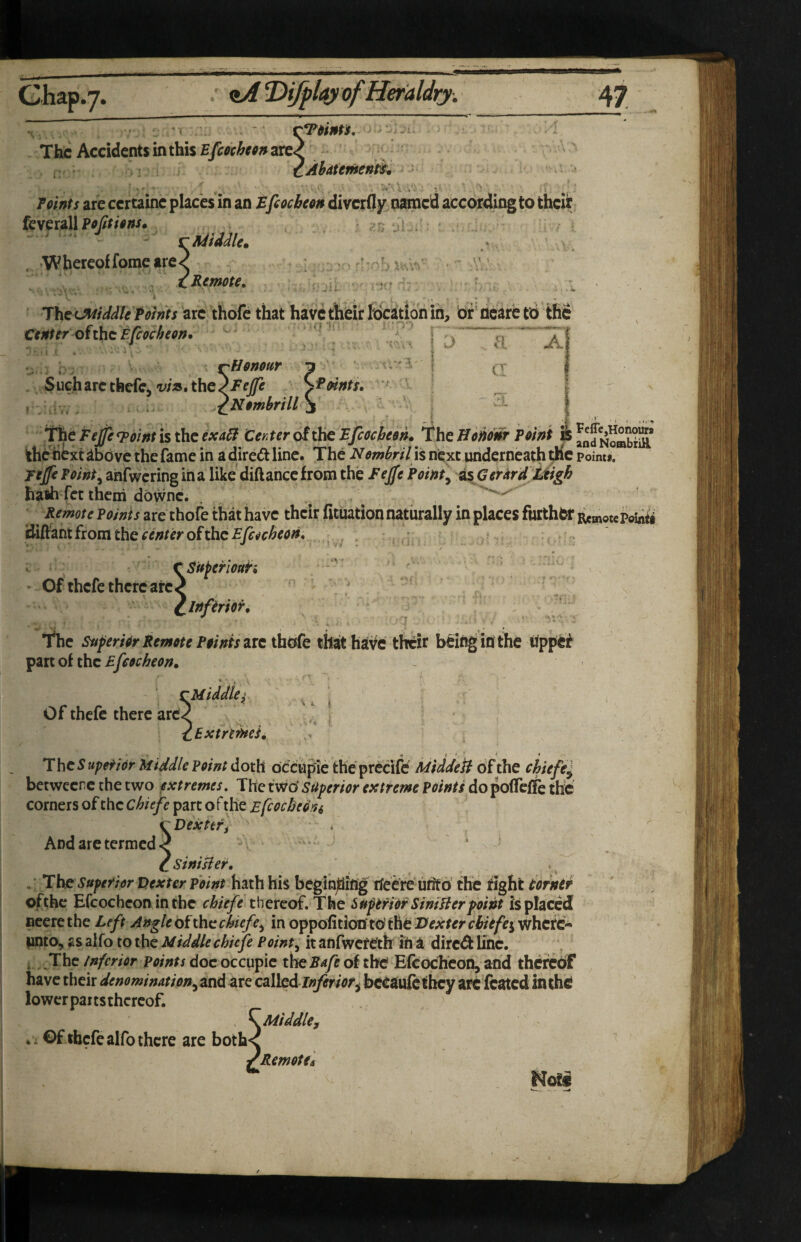 Chap.7. A Diſplay of Heraldry. 47
Points.
The Accidents in this Eſcocheon are
Abatements.
Points are certaine places in an Eſcocheon diverſly named according to their
ſeverall Poſitions.
Middle.
Whereof ſome are
Remote.
The Middle Points are thoſe that have their location in, or neare to the
Center of the Eſcocheon.
Honour
Such are theſe, viz. the Feſſe Points.
Nombrill
The Feſſe Point is the exact Center of the Eſcocheon. The Honour Point is
Feſſe, Honour,
and Nombrill
the next above the ſame in a direct line. The Nombril is next underneath the
Points.
Feſſe Point, anſwering in a like diſtance from the Feſſe Point, as Gerard Leigh
hath ſet them downe.
Remote Points are thoſe that have their ſituation naturally in places further
Remote Points
diſtant from the center of the Eſcocheon.
Superiour;
Of theſe there are
Inferior.
The Superior Remote Points are thoſe that have their being in the upper
part of the Eſcocheon.
Middle,
Of theſe there are
Extremes.
The Superior Middle Point doth occupie the preciſe Middeſt of the chiefe,
betweene the two extremes. The two Superior extreme Points do poſſeſſe the
corners of the Chiefe part of the Eſcocheon;
Dexter,
And are termed
Siniſter.
The Superior Dexter Point hath his beginning neere unto the right corner
of the Eſcocheon in the chiefe thereof. The Superior Siniſter point is placed
neere the Left Angle of the chiefe, in oppoſition to the Dexter chiefe; where-
unto, as alſo to the Middle chiefe Point, it anſwereth in a direct line.
The Inferior Points doe occupie the Baſe of the Eſcocheon, and thereof
have their denomination, and are called Inferior, becauſe they are ſeated in the
lower parts thereof.
Middle,
Of theſe alſo there are both
Remote.
Note